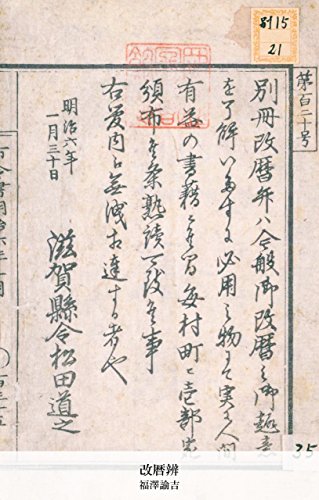 別15
21
第百二十号
別冊改暦弁ハ今般御改暦之御趣意
を了解いたすに必用之物にて実ニ人間
有益の書籍ニ候間毎村町ニ壱部宛
頒布候条熟読可致候事
右管内ニ無洩相達する者也
明治六年
一月三十日
滋賀縣令松田道之
35
改暦辨
福澤諭吉